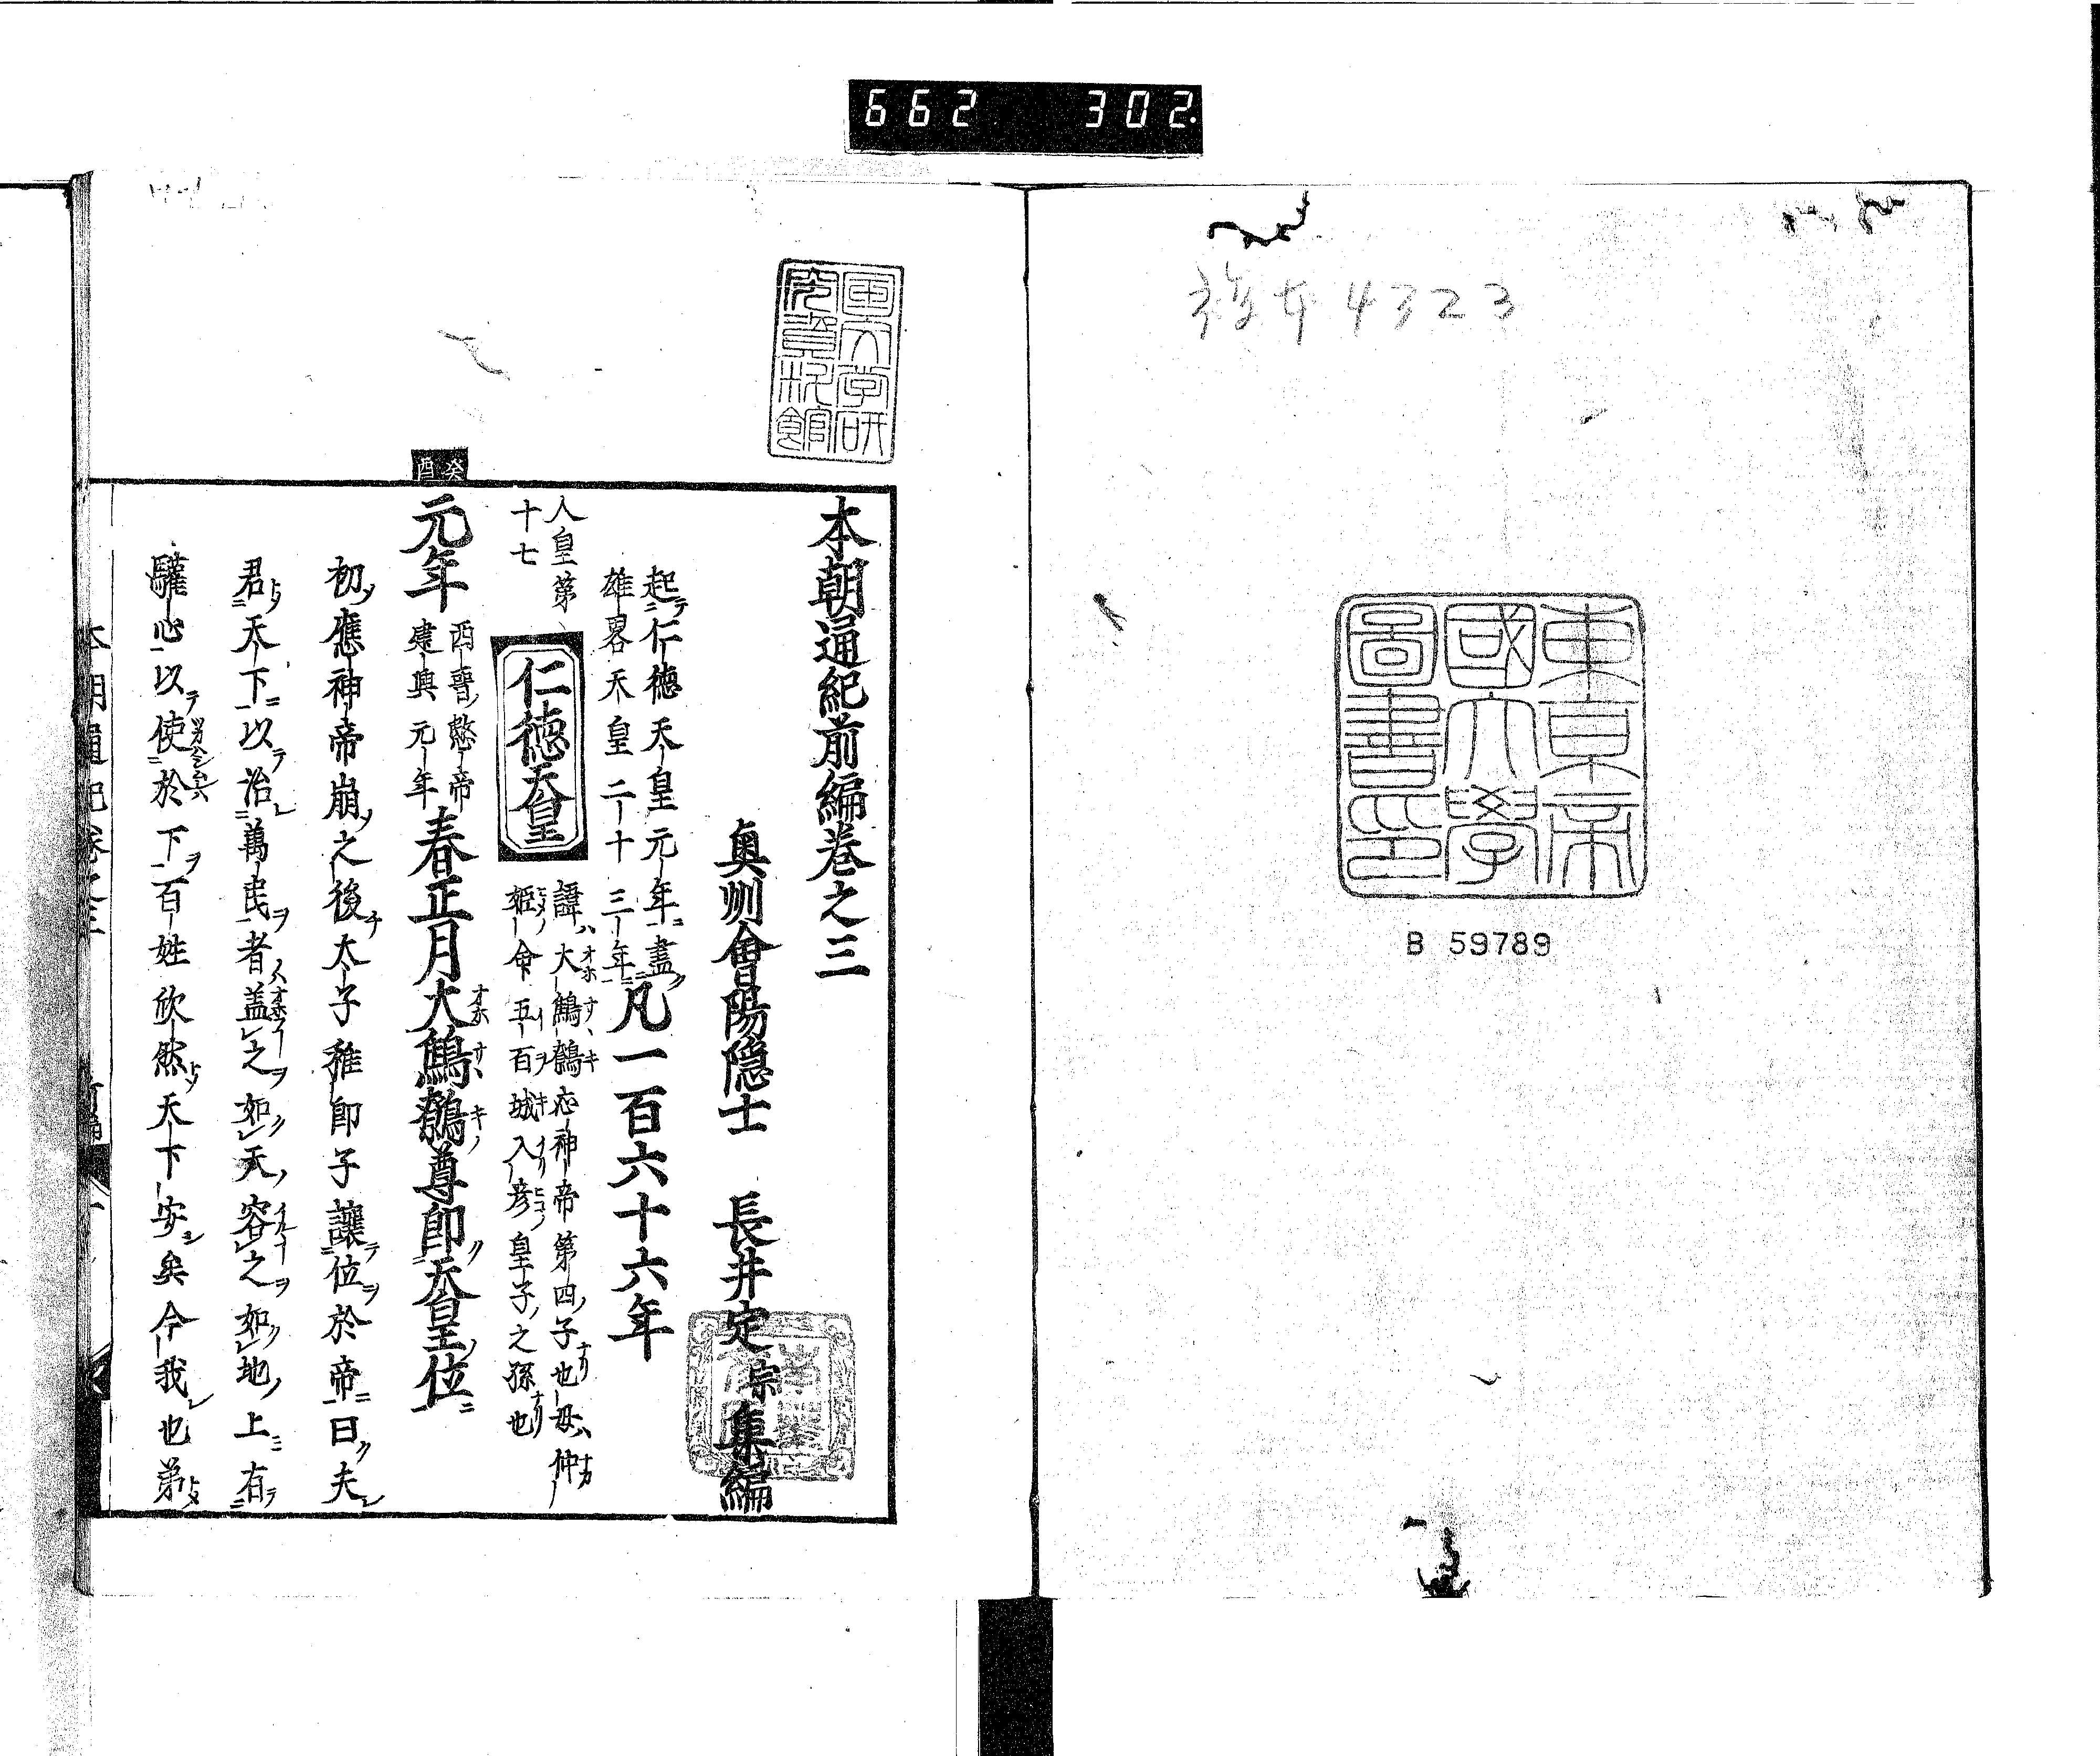 662 302.
複本4323
東京帝
國大學
圖書印
B 59789
国文学研
究資料館
本朝通紀前編卷之三
奥州會陽隠士 長井定宗集編
起仁德天皇元年盡
雄畧天皇二十三年凡一百六十六年
人皇第
十七
仁德天皇
諱大鷦鷯応神帝第四子也母仲
姫命五百城入彦皇子之孫也
癸酉
元年
西晋愍帝
建興元年
春正月大鷦鷯尊即天皇位
初應神帝崩之後太子稚郎子讓位於帝曰夫
君天下以治萬民者盖之如天容之如地上有
驩心以使於下百姓欣然天下安矣今我也弟